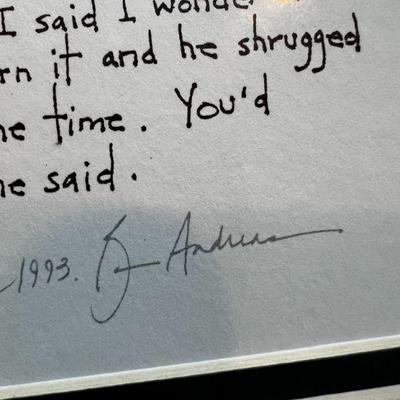 I said I wonder
rn it and he shrugged
he time. You'd
he said.
1993. Andreas